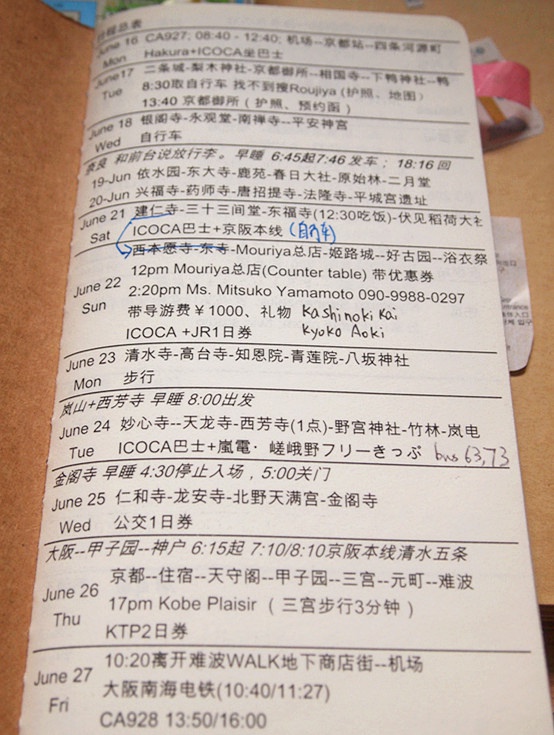 行程总表
June 16 CA927; 08:40 - 12:40; 机场--京都站--四条河源町
Mon Hakura+ICOCA坐巴士
June17 二条城-梨木神社-京都御所--相国寺--下鸭神社--鸭
Tue 8:30取自行车 找不到搜Roujiya (护照、地图)
13:40 京都御所 ( 护照、预约函 )
June 18 银阁寺-永观堂-南禅寺--平安神宫
Wed 自行车
奈良 和前台说放行李。早睡 6:45起7:46发车; 18:16回
19-Jun 依水园-东大寺-鹿苑-春日大社-原始林-二月堂
20-Jun 兴福寺-药师寺-唐招提寺-法隆寺-平城宫遗址
June 21 建仁寺-三十三间堂-东福寺(12:30吃饭)-伏见稻荷大社
Sat ICOCA巴士+京阪本线 (自行车)
西本愿寺-东寺-Mouriya总店-姬路城--好古园--浴衣祭
June 22 12pm Mouriya总店(Counter table) 带优惠券
Sun 2:20pm Ms. Mitsuko Yamamoto 090-9988-0297
带导游费￥1000、礼物 Kashinoki Kai
ICOCA +JR1日券 Kyoko Aoki
June 23 清水寺-高台寺-知恩院-青莲院-八坂神社
Mon 步行
岚山+西芳寺 早睡 8:00出发
June 24 妙心寺--天龙寺-西芳寺(1点)-野宫神社-竹林-岚电
Tue ICOCA巴士+嵐電· 嵯峨野フリーきっぷ bus 63,73
金阁寺 早睡 4:30停止入场，5:00关门
June 25 仁和寺-龙安寺-北野天满宫-金阁寺
Wed 公交1日券
大阪--甲子园--神户 6:15起 7:10/8:10京阪本线清水五条
June 26 京都--住宿--天守阁--甲子园--三宫--元町--难波
Thu 17pm Kobe Plaisir ( 三宫步行3分钟 )
KTP2日券
June 27 10:20离开难波WALK地下商店街--机场
Fri 大阪南海电铁(10:40/11:27)
CA928 13:50/16:00